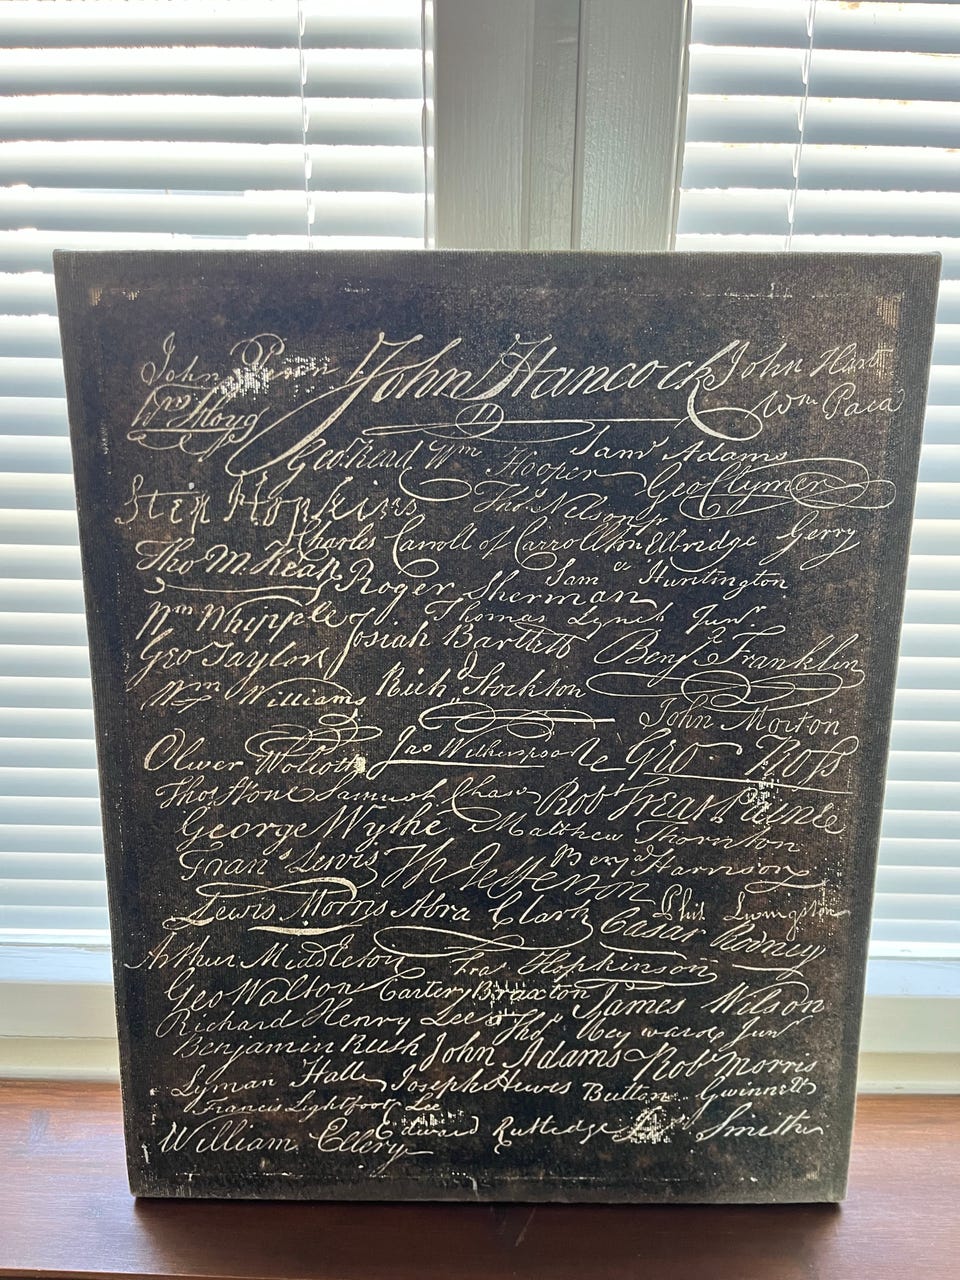 John Penn John Hancock John Hart
Wm Floyd Wm Paca
Geo: Read Wm Hooper Saml Adams
Step Hopkins Thos Nelson jr Geo Clymer
Charles Carroll of Carrollton Elbridge Gerry
Tho M:Kean Roger Sherman Saml Huntington
Wm Whipple Thomas Lynch Junr.
Geo Taylor Josiah Bartlett Benj Franklin
Wm Williams Richd Stockton
John Morton
Oliver Wolcott Jno Witherspoon Geo Ross
Thos Stone Samuel Chase Robt Treat Paine
George Wythe Matthew Thornton
Frans Lewis Th Jefferson Benja Harrison
Lewis Morris Abra Clark Phil. Livingston
Cæsar Rodney
Arthur Middleton Fras Hopkinson
Geo Walton Carter Braxton James Wilson
Richard Henry Lee Thos Heyward Junr
Benjamin Rush John Adams Robt Morris
Lyman Hall Joseph Hewes Button Gwinnett
Francis Lightfoot Lee
William Ellery Edward Rutledge Smith